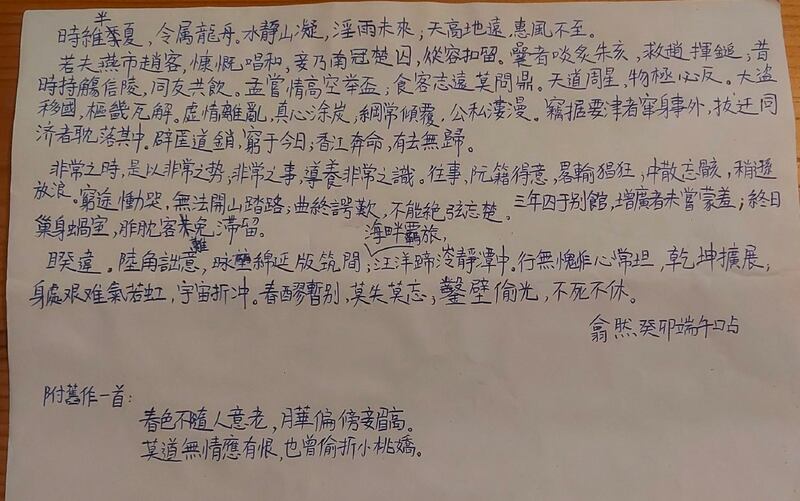 半
時維季夏，令属龍舟。水靜山凝，淫雨未來；天高地遠，惠風不至。
若夫燕市趙客，慷慨唱和，妾乃南冠楚囚，從容扣留。饗者啖炙朱亥，救趙揮鎚；昔
時持觴信陵，同友共飲。孟嘗情高空举盃；食客志遠莫問鼎。天道周星，物極必反。大盜
移國，樞機瓦解。虛情離亂，真心涂炭，綱常傾覆，公私淒漫。竊据要津者窜身事外，拔迁同
济者耽落其中。辟匡道銷，窮于今日；香江奔命，有去無歸。
非常之時，是以非常之势；非常之事，導養非常之識。往事，阮籍得意，畧輸猖狂，中散忘骸，稍遜
放浪。窮途慟哭，無法開山踏路；曲終謌歎，不能絶弦忘楚。三年囚于别館，增廣者未嘗蒙羞；終日
巢身蝸室，胙肬客未免滯留。
離 海畔羈旅，
睽違。陸角詘意，咏墮綿延版筑間；汪洋蹄涔靜潭中。行無愧怍心常坦，乾坤擴展，
身處艰难氣若虹，宇宙折冲。春醪暫别，莫失莫忘；鑿壁偷光，不死不休。
翕然癸卯端午口占
附舊作一首：
春色不隨人意老，月華偏傍妾眉高。
莫道無情應有恨，也曾偷折小桃嬌。